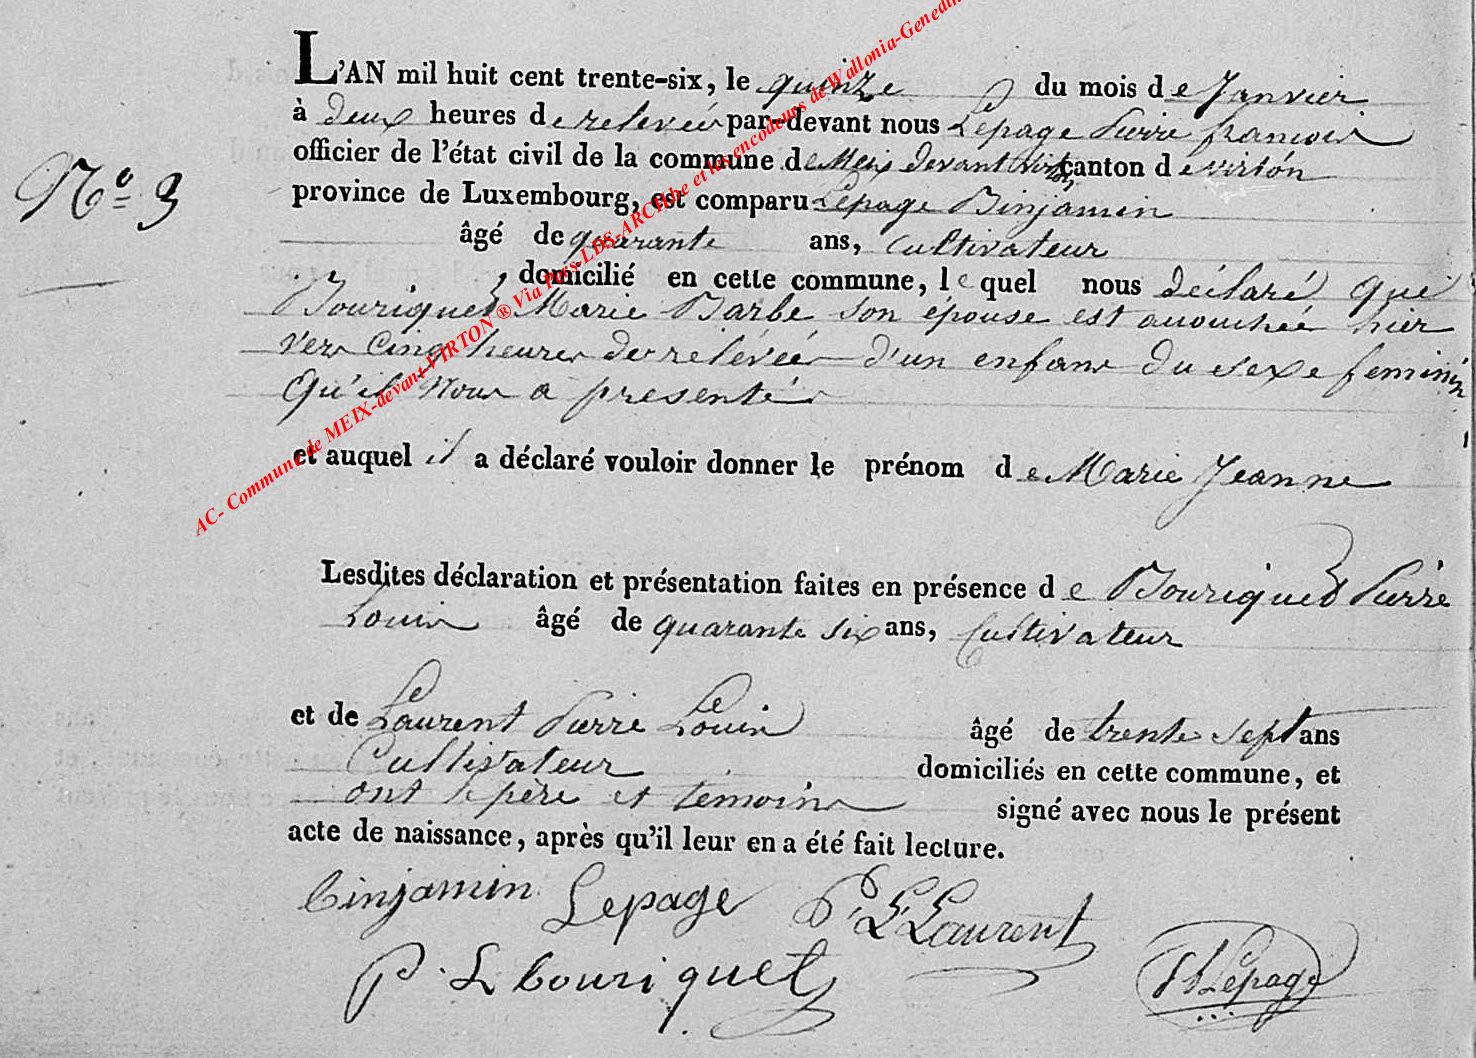 L'AN mil huit cent trente-six, le quinze du mois de Janvier
à deux heures de relevée par-devant nous Lepage Pierre francois
officier de l'état civil de la commune de Meix devant virton canton de virton
N.º 3
province de Luxembourg, est comparu Lepage Binjamin
âgé de quarante ans, cultivateur
domicilié en cette commune, lequel nous déclaré que
Bouriquet Marie Barbe son épouse est accouchée hier
vers cinq heures de relévée d'un enfant du sexe feminin
Qu'il Nous a presenté
et auquel il a déclaré vouloir donner le prénom de Marie Jeanne
Lesdites déclaration et présentation faites en présence de Bouriquet Pierre
Louis âgé de quarante six ans, Cultivateur
et de Laurent Pierre Louis âgé de trente sept ans
Cultivateur domiciliés en cette commune, et
ont le père et témoins signé avec nous le présent
acte de naissance, après qu'il leur en a été fait lecture.
binjamin Lepage P. L. Laurent
P. L bouriquet Lepage
AC- Commune de MEIX-devant-VIRTON ® Via Pros-LDS-ARCHbe et les encodeurs de Wallonia-Genedin